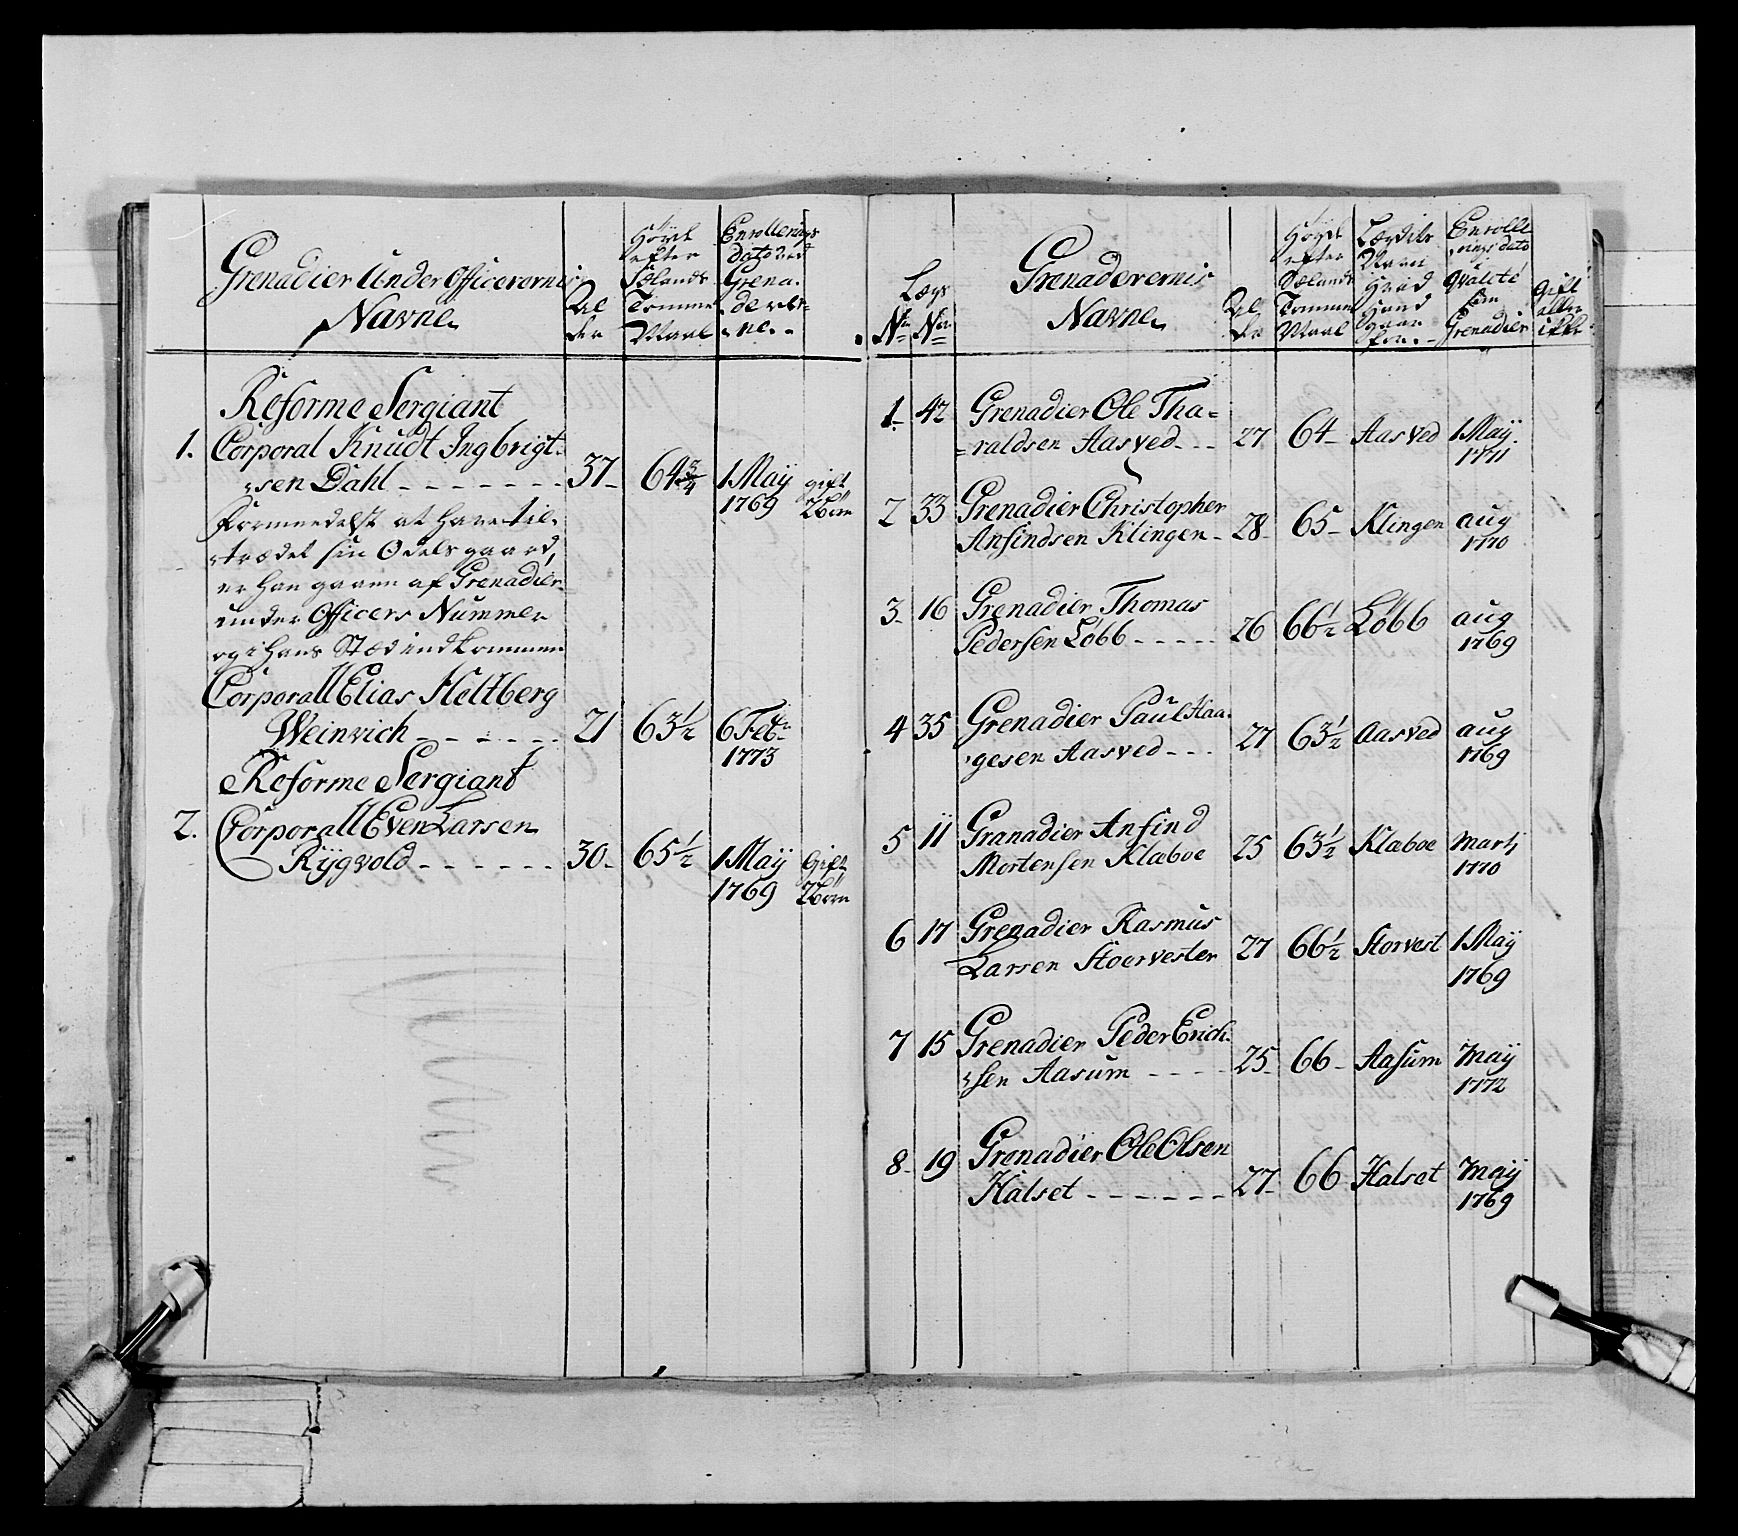 Grenadier Under Officerernis
Navne
Al
der
Höyde
efter
Sælands
Tomme
Maal
Enrollerings
dato ved
Grena-
derer-
ne.
Reforme Sergiant
1. Corporal Knudt Ingbrigt-
sen Dahl 37 64 3/4 1 Maÿ gift
1769 2 Börn
Formedelst at have til-
trædet sin Odelsgaard,
er han gaaen af Grenadier
under Officers Nummer
og i Hans Stæd indkommen
Corporall Elias Heltberg
Weinrich 21 63 1/2 6 Feb:
1773
Reforme Sergiant
2. Corporall Even Larsen
Rÿgvold 30 65 1/2 1 Maÿ Gift
1769 2 Börn
No
Lægs
No
Grenaderernis
Navne
Al
der
Höyde
efter
Sælands
Tomme
Maal
Lægdets
Navn
Hvad
Hand
gaar
for
Enrolle
rings dato
Qvalité
som
Grenadier
Gift
eller
ikke
1. 42 Grenadier Ole Tha-
raldsen Aasved 27 64 Aasved 1 Maÿ
1771
2 33 Grenadier Christopher
Anfindsen Klingen 28 65 Klingen aug
1770
3 16 Grenadier Thomas
Pedersen Löbb 26 66 1/2 Löbb aug
1769
4 35 Grenadier Paul Haa-
gesen Aasved 27 63 1/2 Aasved aug
1769
5 11 Granadier Anfind
Mortensen Klæboe 25 63 1/2 Klæboe Martj
1770
6 17 Grenadier Rasmus
Larsen Stoervesten 27 66 1/2 Storvest 1 Maÿ
1769
7 15 Grenadier Peder Erich-
sen Aasum 25 66 Aasum Maÿ
1772
8 19 Grenadier Ole Olsen
Halset 27 66 Halset Maÿ
1769